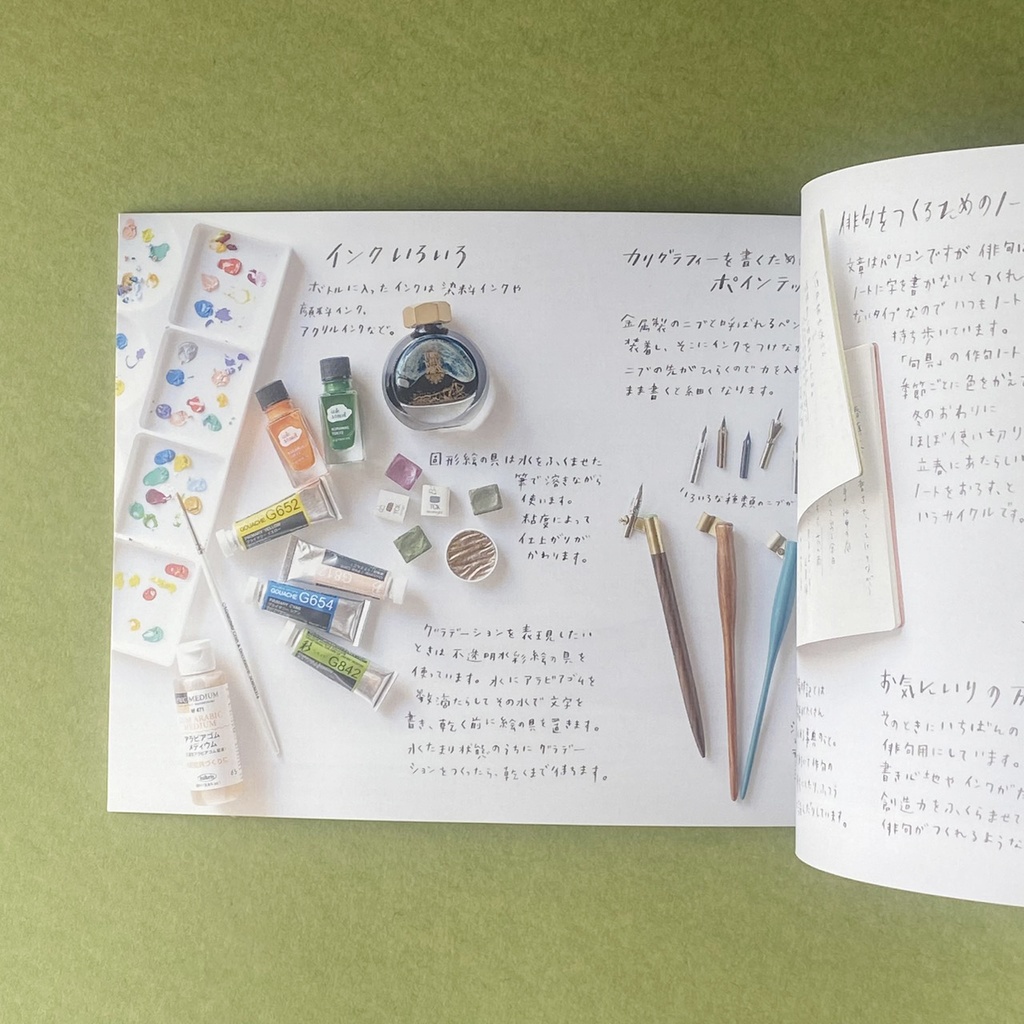 インクいろいろ
ボトルに入ったインクは染料インクや
顔料インク、
アクリルインクなど。
固形絵の具は水をふくませた
筆で溶きながら
使います。
粘度によって
仕上がりが
かわります。
グラデーションを表現したい
ときは不透明水彩絵の具を
使っています。水にアラビアゴムを
数滴たらしてその水で文字を
書き、乾く前に絵の具を置きます。
水たまり状態のうちにグラデー
ションをつくったら、乾くまで待ちます。
GOUACHE G652
G612
GOUACHE G654
G842
MEDIUM
GUM ARABIC
MEDIUM
アラビアゴム
メディウム
カリグラフィーを書くため
ポインテッ
金属製のニブと呼ばれるペン
装着し、そこにインクをつけなが
ニブの先がひらくので力を入れ
まま書くと細くなります。
いろいろな種類のニブが
俳句をつくるためのノー
文章はパソコンですが俳句は
ノートに字を書かないとつくれ
ないタイプなのでいつもノート
持ち歩いています。
「句具」の作句ノート
季節ごとに色をかえて
冬のおわりに
ほぼ使い切り
立春にあたらしい
ノートをおろす、と
いうサイクルです。
お気にいりの万
そのときにいちばんの
俳句用にしています。
書き心地やインクがた
創造力をふくらませて
俳句がつくれるような